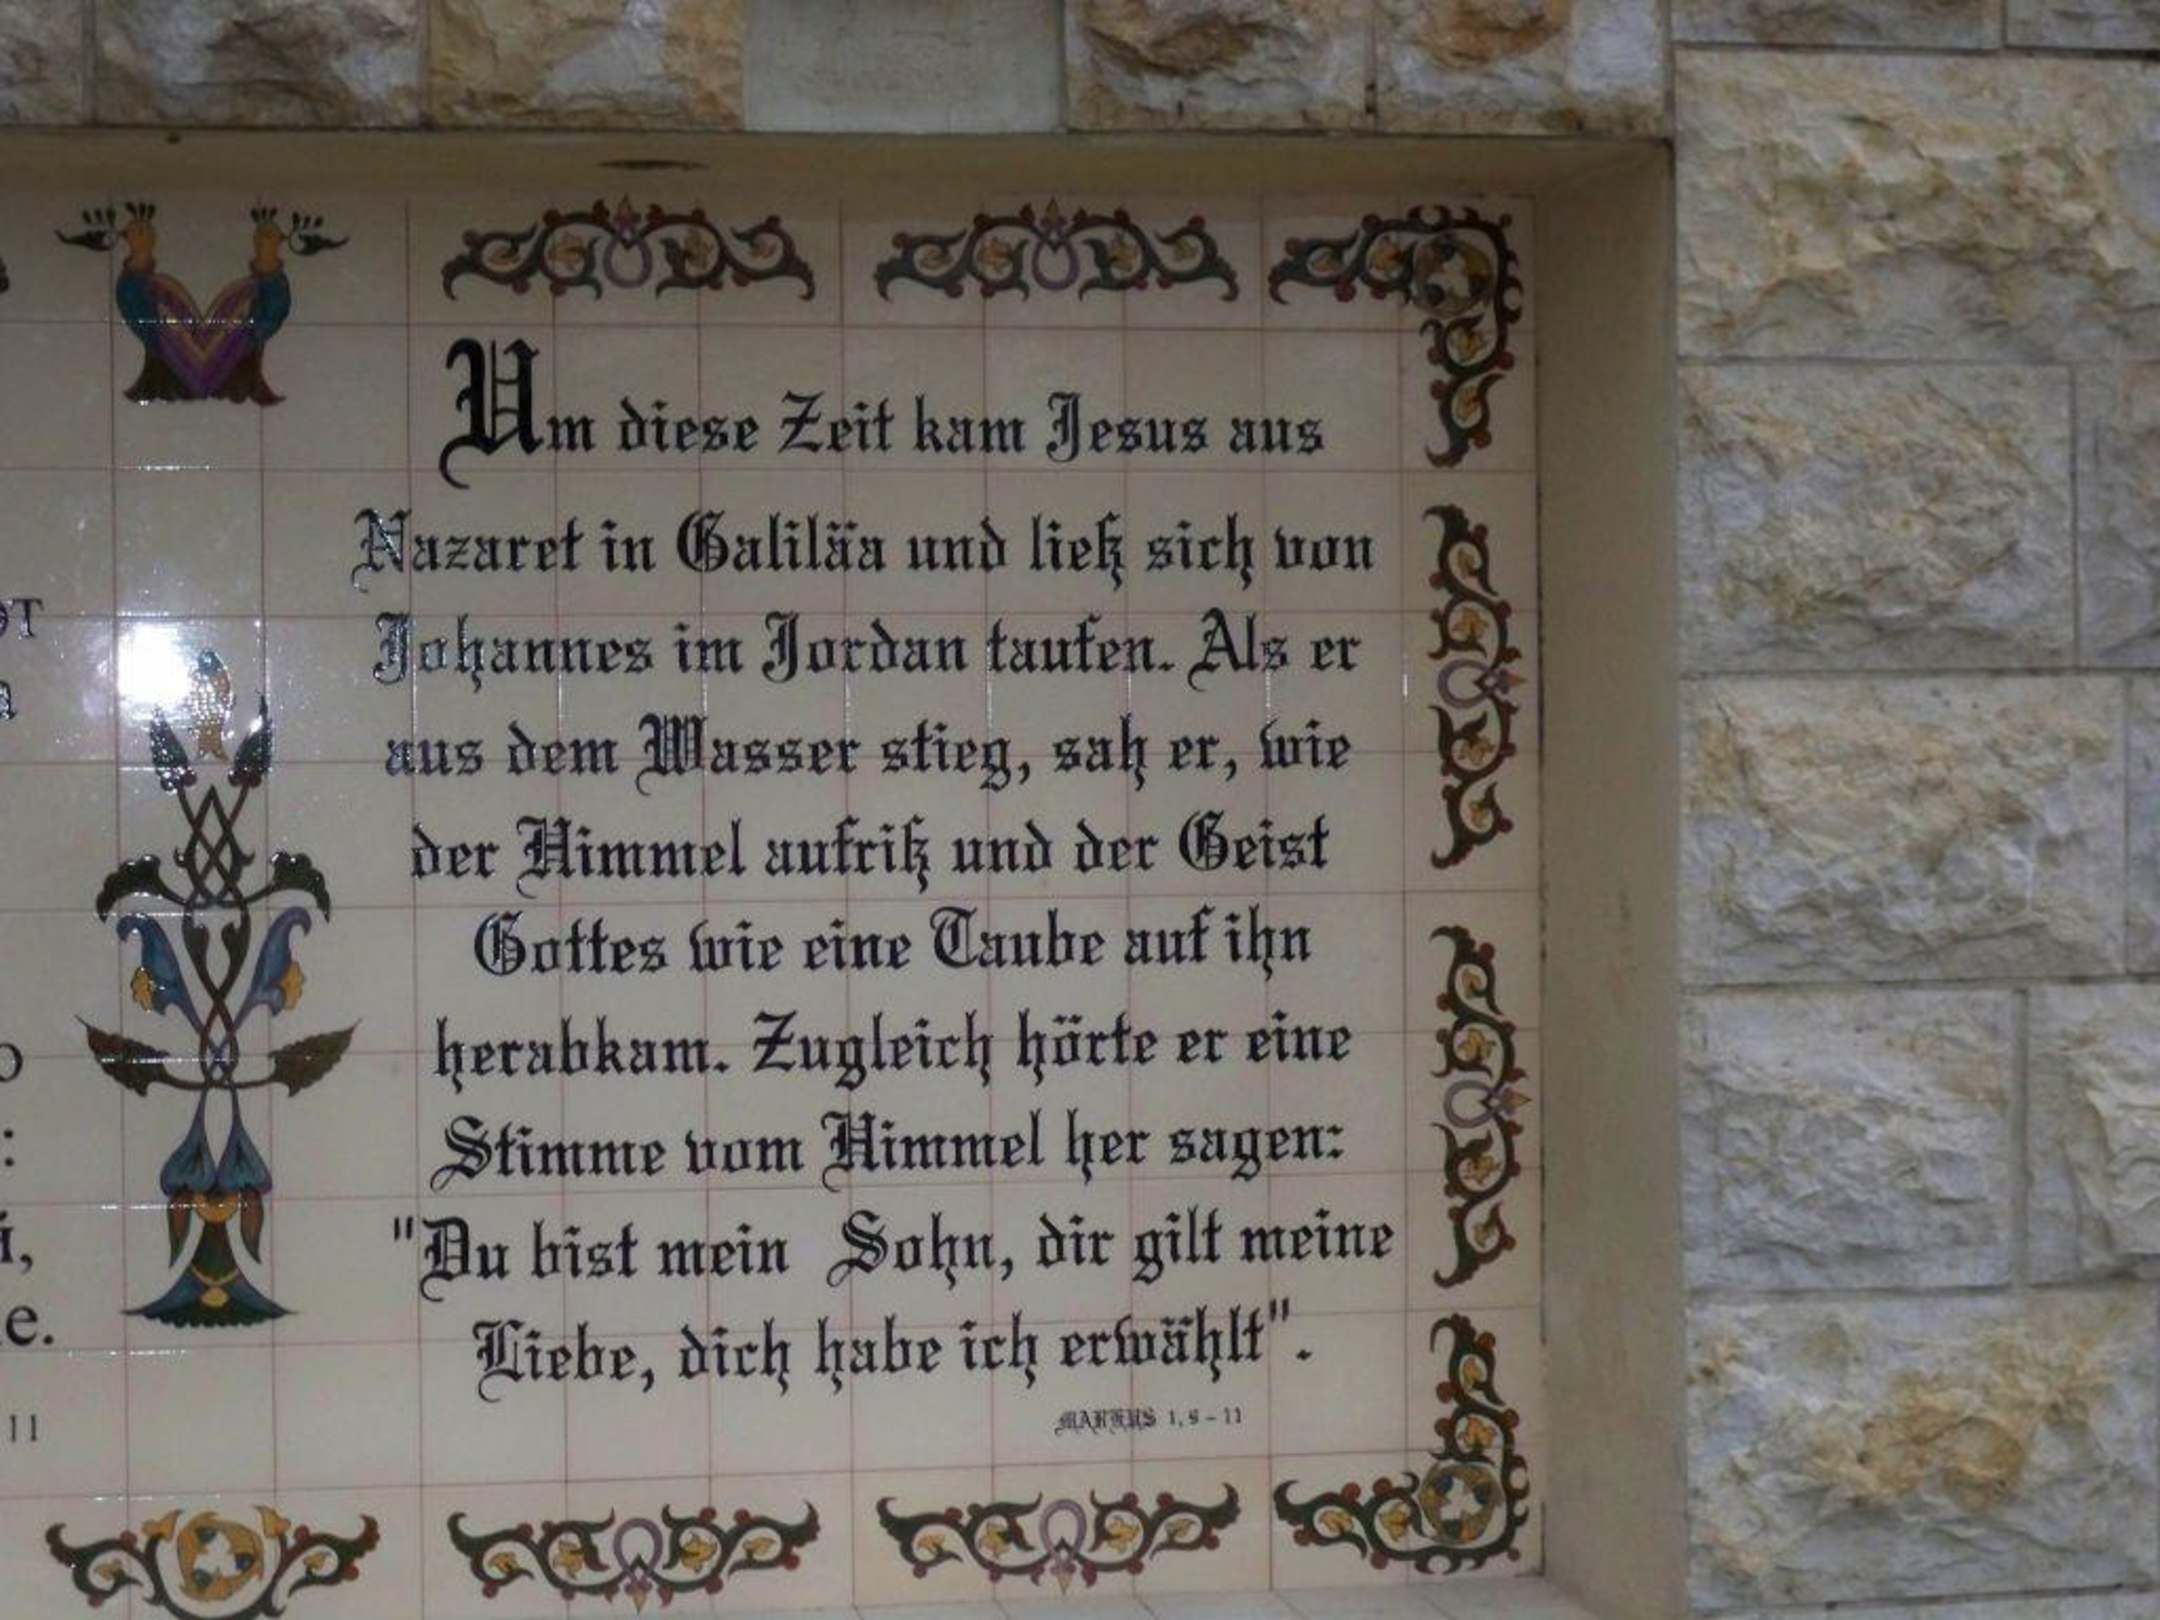 Um diese Zeit kam Jesus aus
Nazaret in Galiläa und ließ sich von
Johannes im Jordan taufen. Als er
aus dem Wasser stieg, sah er, wie
der Himmel aufriß und der Geist
Gottes wie eine Taube auf ihn
herabkam. Zugleich hörte er eine
Stimme vom Himmel her sagen:
"Du bist mein Sohn, dir gilt meine
Liebe, dich habe ich erwählt".
MARKUS 1, 9 - 11
11